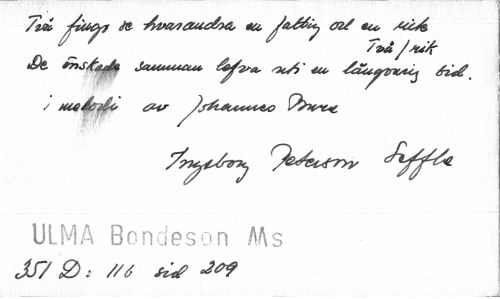 Två fingo se hvarandra en fattig och en rik
Två / rik
De önskade samman lefva uti en långvarig tid.
i melodi av Johannes Bura
Ingeborg Peterson Säffle
ULMA Bondeson Ms
351 D: 116 sid 209